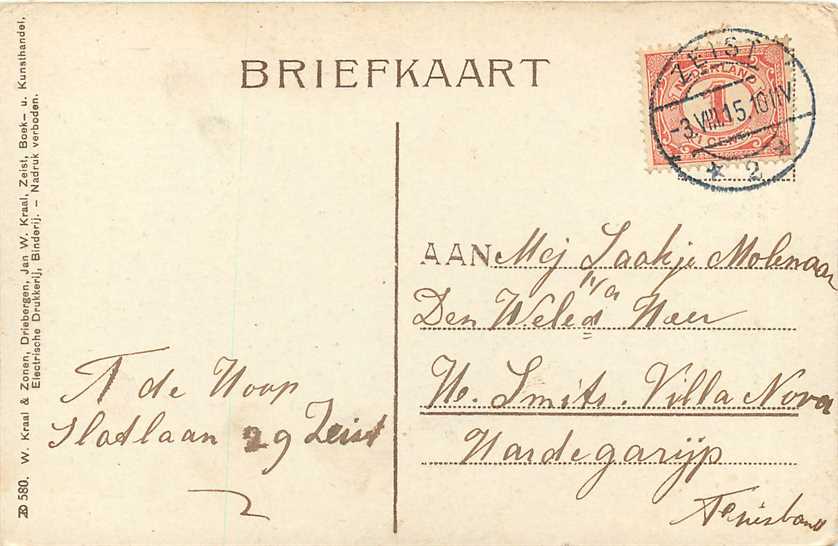 BRIEFKAART
ZEIST
-3.VIII.15.10-11V
2
NEDERLAND
1
1 CENT
AAN Mej Saakje Molenaar
p/a
Den Weled Heer
H. Smits. Villa Nova
Hardegarijp
A de Hoop
Slotlaan 29 Zeist
580. W. Kraal & Zonen, Driebergen, Jan W. Kraal, Zeist, Boek- u. Kunsthandel,
Electrische Drukkerij, Binderij. - Nadruk verboden.